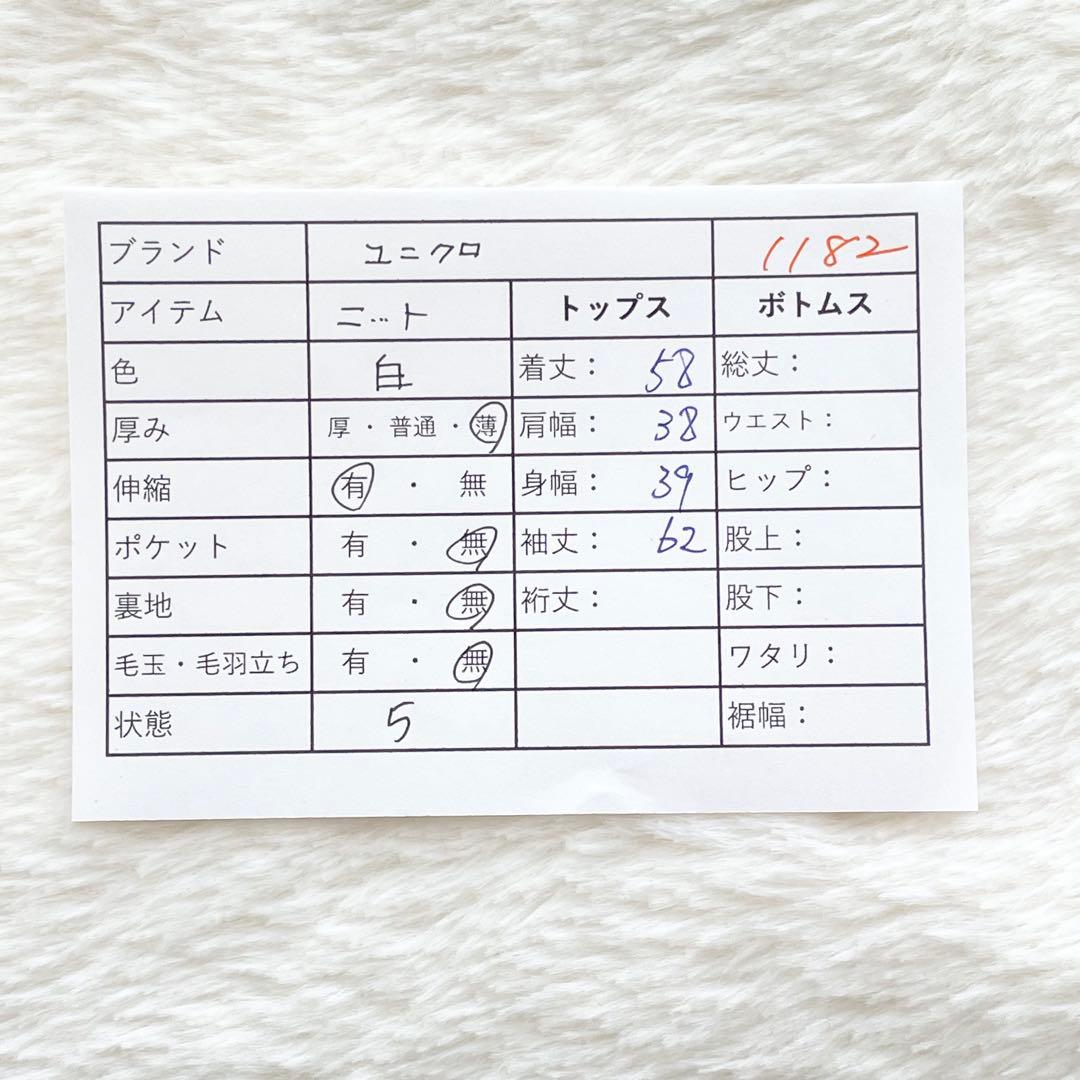 ブランド ユニクロ 1182
アイテム ニット トップス ボトムス
色 白 着丈： 58 総丈：
厚み 厚・普通・薄 肩幅： 38 ウエスト：
伸縮 有・無 身幅： 39 ヒップ：
ポケット 有・無 袖丈： 62 股上：
裏地 有・無 裄丈： 股下：
毛玉・毛羽立ち 有・無 ワタリ：
状態 5 裾幅：